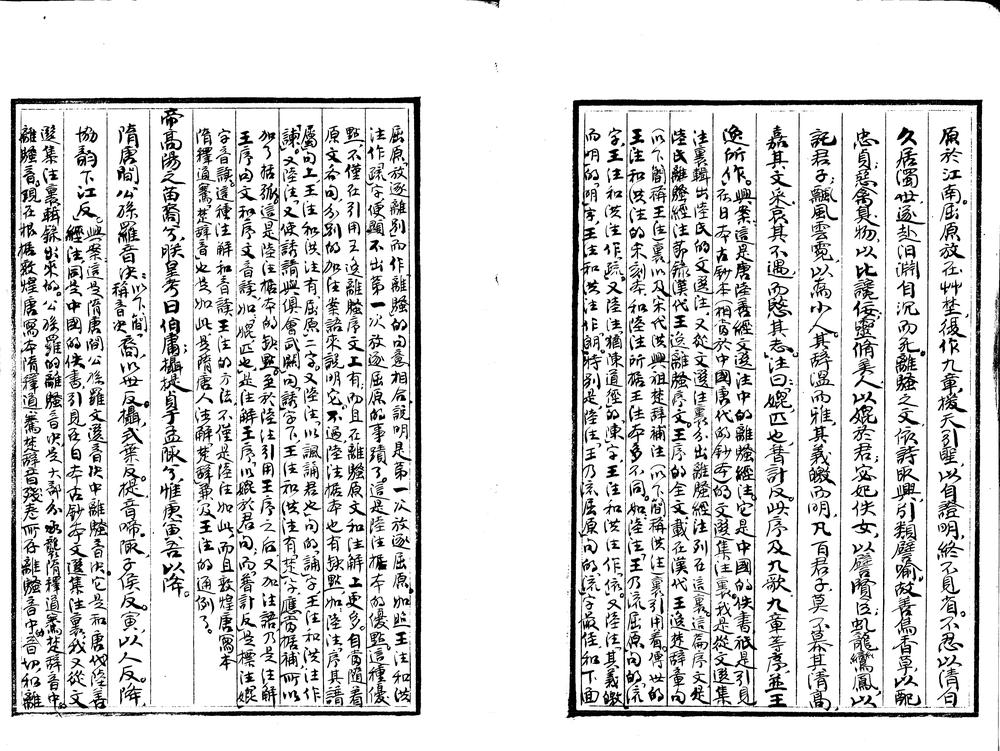 原於江南屈原放在草埜復作九章援天引聖以自證明終不見省不忍以清白
久居濁世遂赴汨淵自沉而死離騷之文依詩取興引類譬喻故善鳥香草以配
忠貞惡禽臭物以比讒佞靈脩美人以媲於君宓妃佚女以譬賢臣虬龍鸞鳳以
託君子飄風雲霓以為小人其辭温而雅其義皦而明凡百君子莫不慕其清高
嘉其文采哀其不遇而愍其志注曰媲匹也普計反此序及九歌九章等序並王
逸所作興案這是唐陸善經文選注中的離騷經注它是中國的佚書祇是引見
在日本古鈔本（相當於中國唐代的鈔本）的文選集注裏我是從文選集
注裏輯出陸氏的文選注又從文選注裏分出離騷經注列在這裏這篇序文是
陸氏離騷經注節錄漢代王逸離騷序文王序的全文載在漢代王逸楚辭章句
（以下簡稱王注）裏以及宋代洪興祖楚辭補注（以下簡稱洪注）裏引用着傳世的
王注和洪注的宋刻本和陸注所據王注本多不同如陸注王乃流屈原句的流
字王注和洪注作疏又陸注猶陳道徑的陳字王注和洪注作依又陸注其義皦
而明的明字王注和洪注作朗特别是陸注王乃流屈原句的流字最佳和下面
屈原放逐離别而作離騷的句意相合說明是第一次放逐屈原如照王注和洪
注作疏字便顯不出第一次放逐屈原的事蹟了這是陸注據本的優點這種優
點不僅在引用王逸離騷序文上有而且在離騷原文和注解上更多自當隨着
原文各句分别的加注案語來說明它不過陸注據本也有缺點如陸注序其譖
屬句上王注和洪注有屈原二字又陸注以諷誦君也句的誦字王注和洪注作
諫又陸注又使請譖與俱會武關句請字下王注和洪注有楚字應當據補所以
加了括弧這是陸注據本的缺點至於陸注引用王序之后又加注語乃是注解
王序的文和序文音讀如媲匹也是注解王序以媲於君句而普計反是標注媲
字音讀這種注解和音讀王注的方法不僅是陸注如此而且敦煌唐寫本
隋釋道騫楚辭音也是如此是隋唐人注解楚辭兼及王注的通例了
帝高陽之苗裔兮朕皇考曰伯庸攝提貞于孟陬兮惟庚寅吾以降
隋唐間公孫羅音决以下簡稱音决裔以世反攝式葉反提音啼陬子侯反寅以人反降
協韵下江反興案這是隋唐間公孫羅文選音决中離騷音决它是和唐代陸善
經注同是中國的佚書引見在日本古鈔本文選集注裏我又從文
選集注裏輯錄出來的公孫羅的離騷音决是大部分承襲隋釋道騫楚辭音中
離騷音現在根据敦煌唐寫本隋釋道騫楚辭音殘卷所存離騷音中的音切和離